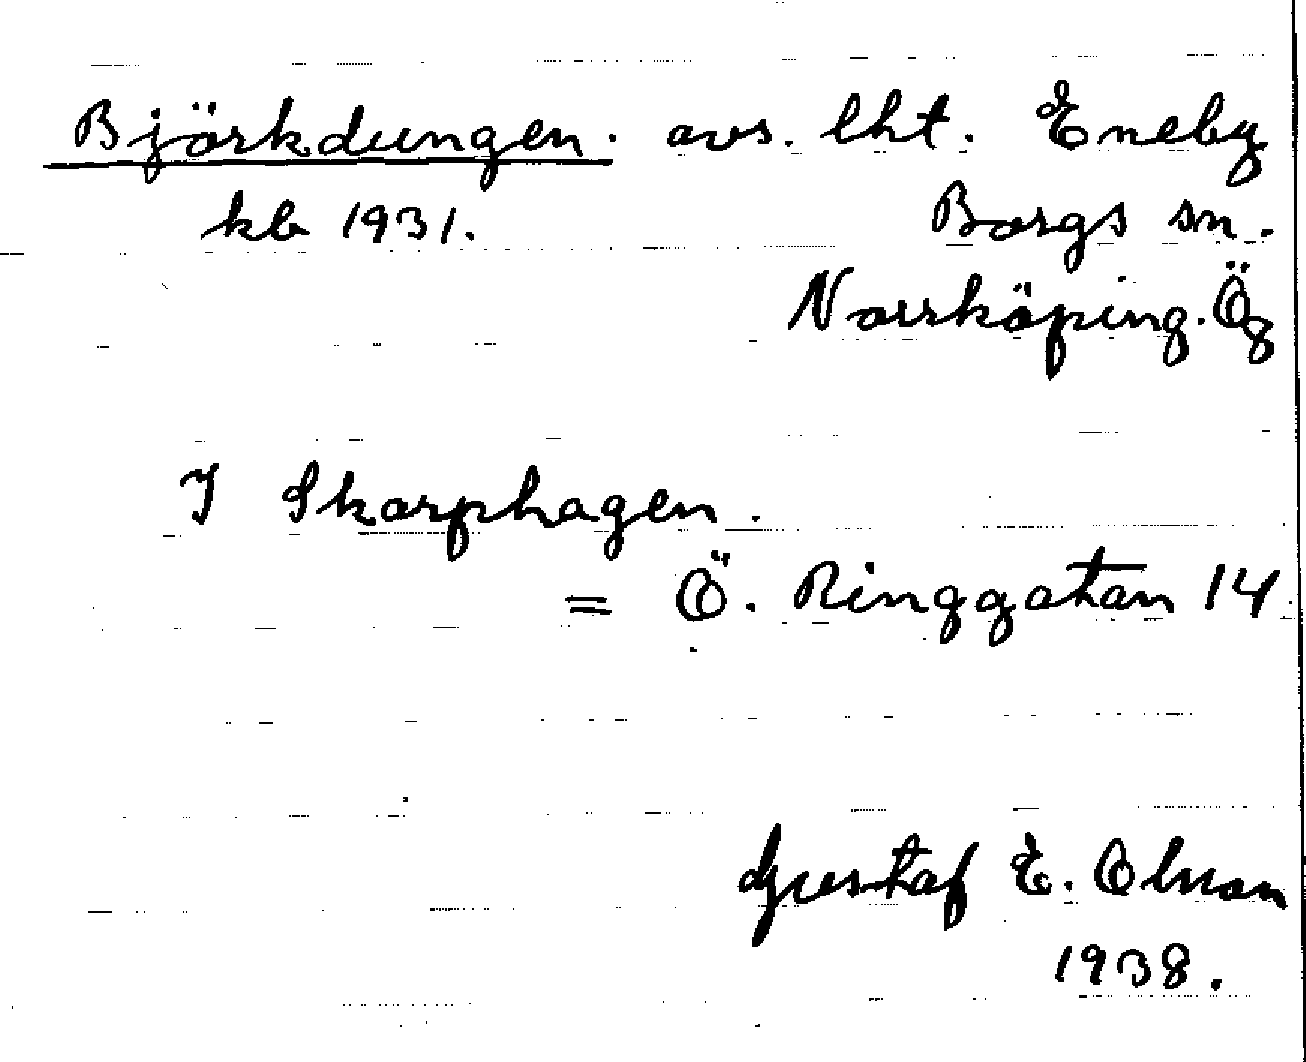 Björkdungen. avs. lht. Eneby
kb 1931. Borgs sn.
Norrköping. Ög
I Skarphagen.
= Ö. Ringgatan 14
Gustaf E. Olsson
1938.